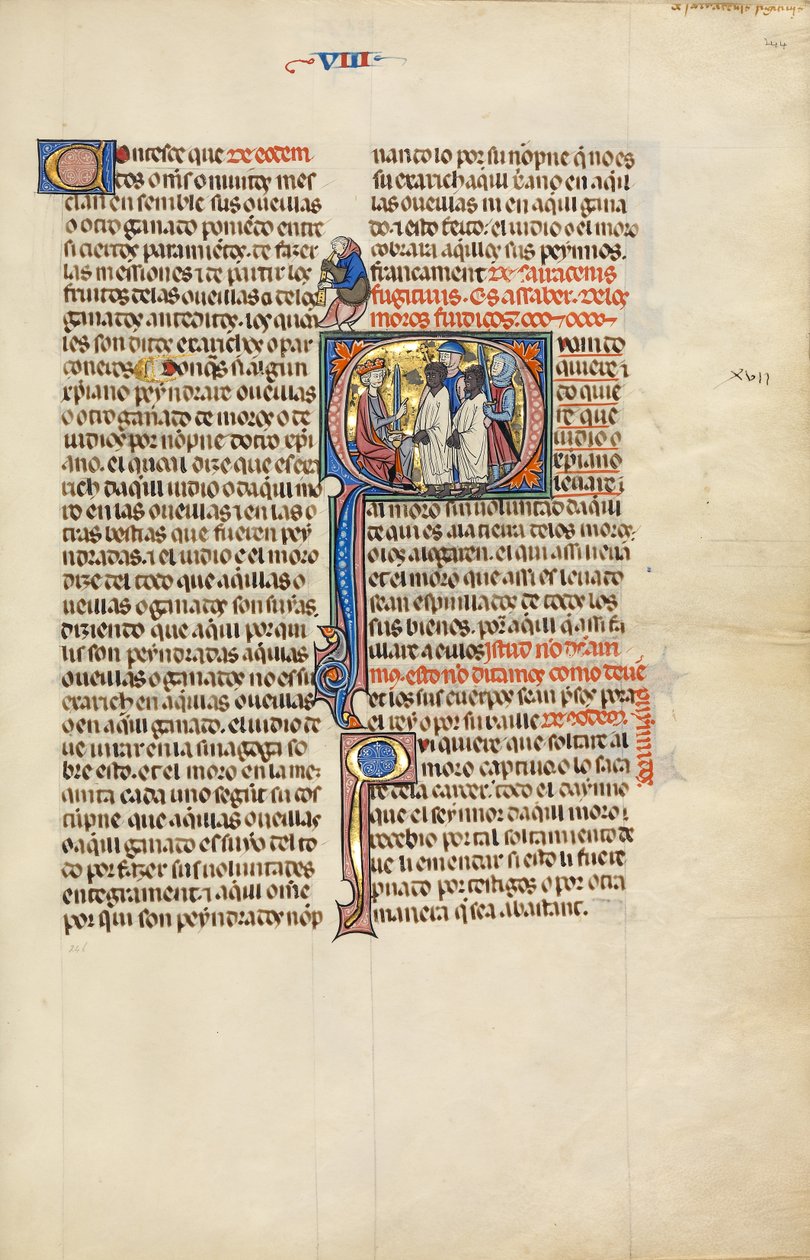 VIII
244
Contesce que De eodem
dos o mꝭs o muitos mes
clan en semble sus oueillas
o otro ganado poniẽdo entre
si ciertos paramiẽtos. de fazer
las messiones ⁊ de partir los
fruitos de las oueillas o de los
ganados antedictos. los quoa
les son dictos exarichos o par
coneros Donq̃s si algun
xp̃iano peyndrare oueillas
o otro ganado de moros o de
iudios por nõpne dotro xp̃i
ano. el quoal dize que es exa
rich daq̃ll iudio o daq̃ll mo
ro en las oueillas ⁊ en las o
tras bestias que fueren pey
ndradas. ⁊ el iudio e el moro
dize del todo que aq̃llas o
ueillas o ganados son suyas.
diziendo que aq̃ll por qui
li son peyndradas aq̃llas
oueillas o ganados no es su
exarich en aq̃llas oueillas
o en aq̃ll ganado. el iudio de
ue iurar en la sinagoga so
bre esto. et el moro en la mez
quita cada uno segũt su cos
tũpne que aq̃llas oueillas
o aq̃ll ganado es suyo del to
do por fazer sus uoluntades
entegrament. ⁊ aq̃ll om̃e
por qui son peyndrados nõp
nando lo por su nõpne q̃ no es
su exarich aq̃ll xp̃ano en aq̃ll
las oueillas ni en aq̃ll gana
do. ⁊ esto feito. el iudio o el moro
cobrara aq̃llos sus peynnos.
francament De sarracenis
fugitiuis. Es assaber. De los
moros fuidiços.
Quando
quiere ⁊
do quie
re que
iudio o
xp̃iano
leuare ⁊
XVII
al moro sin uoluntad daq̃ll
de qui es a la tierra de los moros.
o los alogaren. el qui assi lieua
et el moro que assi es leuado
sean espuillados de todos los
sus bienes.
et los sus cuerpos sean p̃sos pora
el rey o por su baille De eodem.
Qui quiere que soltare al
moro captiuo. o lo saca
re de la carcer. todo el daynno
que el seynnor daq̃ll moro ⁊
recebio por tal soltamiento de
ue li emendar si esto li fuere
p̃uado por testigos o por otra
manera q̃ sea abastant.
246